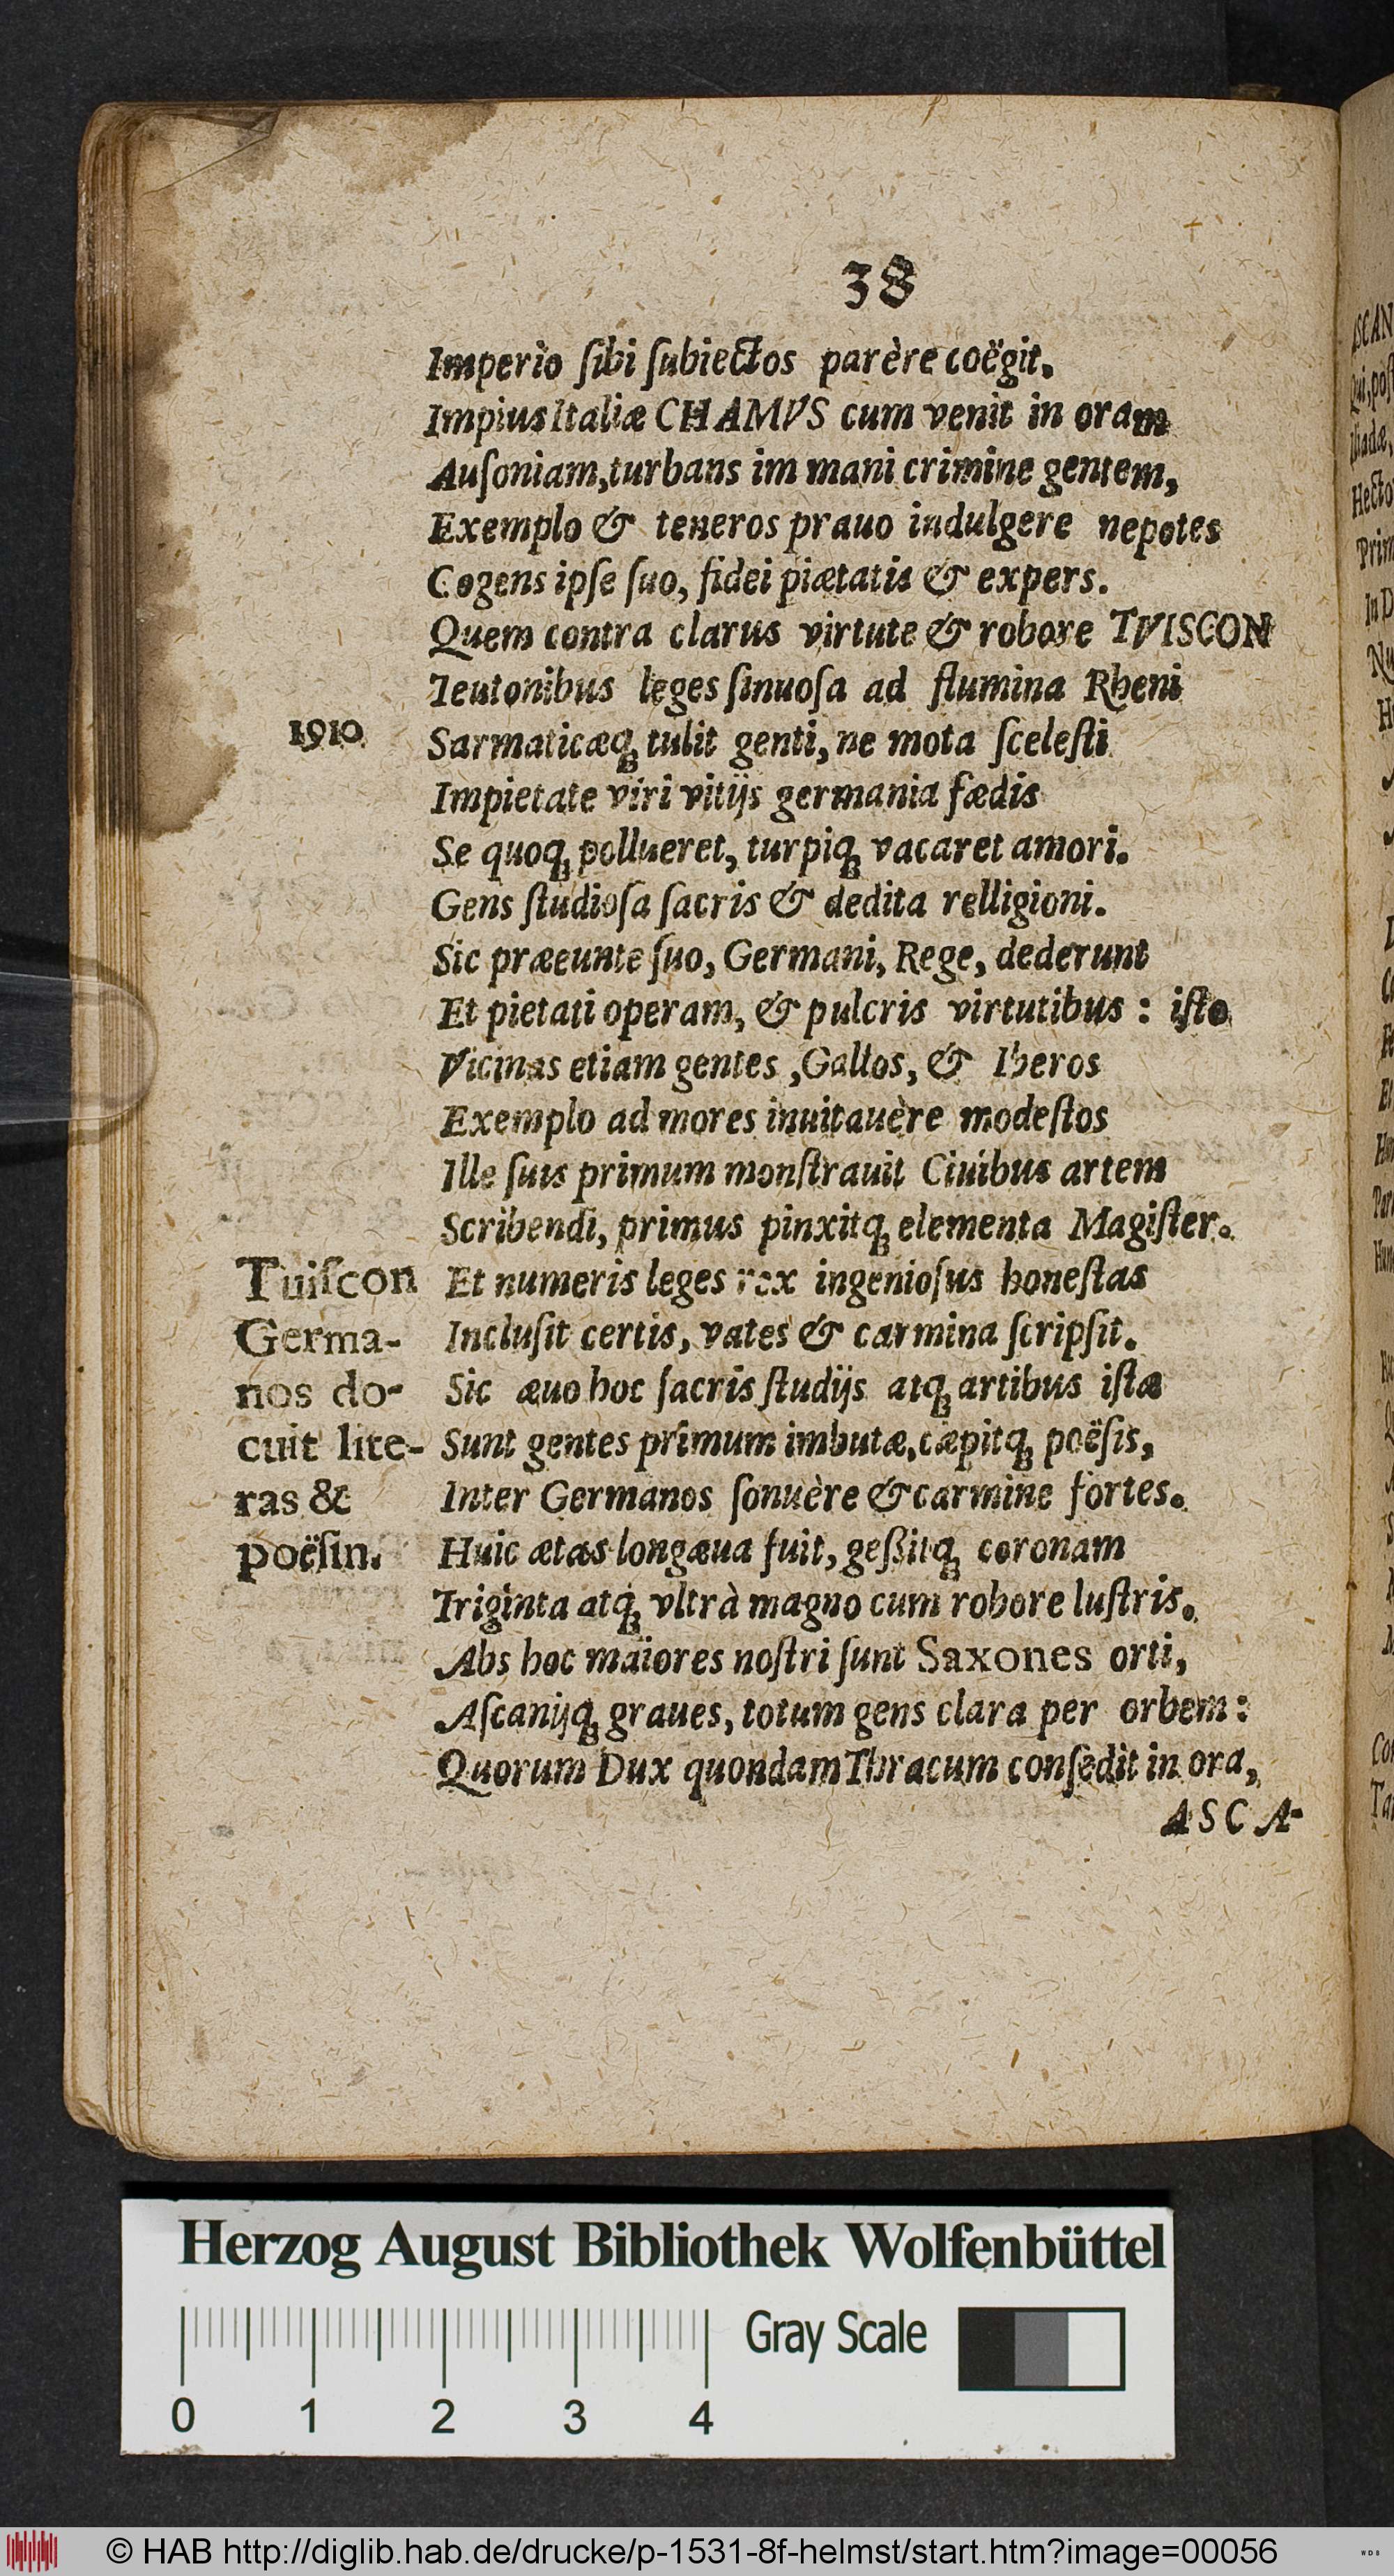 38
Imperio ſibi ſubiectos parère coëgit.
Impius Italiæ CHAMVS cum venit in oram
Auſoniam, turbans im mani crimine gentem,
Exemplo & teneros prauo indulgere nepotes
Cogens ipſe ſuo, fidei piætatis & expers.
Quem contra clarus virtute & robore TVISCON
Teutonibus leges ſinuoſa ad flumina Rheni
1910 Sarmaticæq́; tulit genti, ne mota ſceleſti
Impietate viri vitijs germania fædis
Se quoq́; pollueret, turpiq́; vacaret amori.
Gens ſtudioſa ſacris & dedita relligioni.
Sic præeunte ſuo, Germani, Rege, dederunt
Et pietati operam, & pulcris virtutibus : iſto
Vicinas etiam gentes ,Gallos, & Iberos
Exemplo ad mores inuitauère modeſtos
Ille ſuis primum monſtrauit Ciuibus artem
Scribendi, primus pinxitq́; elementa Magiſter.
Tuiſcon Et numeris leges rex ingenioſus honeſtas
Germa- Incluſit certis, vates & carmina ſcripſit.
nos do- Sic æuo hoc ſacris ſtudijs atq́; artibus iſtæ
cuit lite- Sunt gentes primum imbutæ, cæpitq́; poëſis,
ras & Inter Germanos ſonuère & carmine fortes.
poëſin. Huic ætas longæua fuit, geßitq́; coronam
Triginta atq́; vltrà magno cum robore luſtris.
Abs hoc maiores noſtri ſunt Saxones orti,
Aſcanijq́; graues, totum gens clara per orbem:
Quorum Dux quondam Thracum conſedit in ora,
ASCA-
Herzog August Bibliothek Wolfenbüttel
Gray Scale
0 1 2 3 4
© HAB http://diglib.hab.de/drucke/p-1531-8f-helmst/start.htm?image=00056